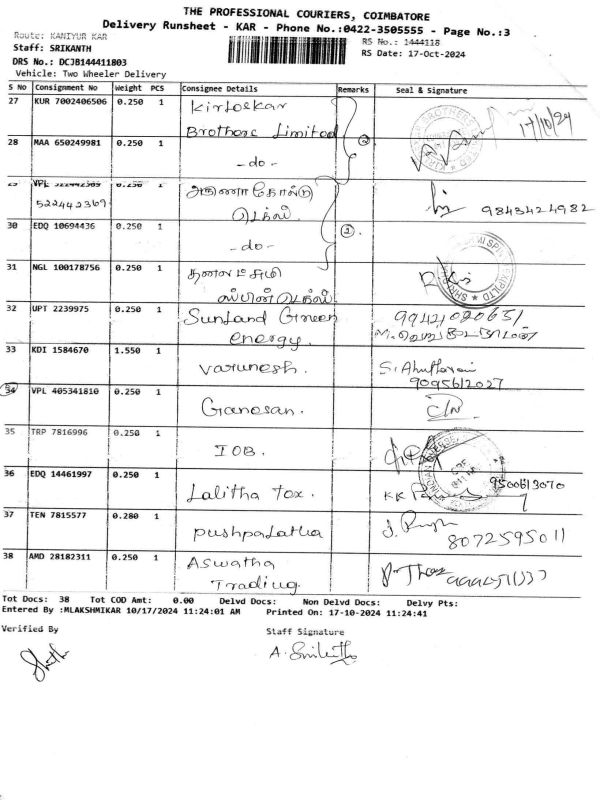 THE PROFESSIONAL COURIERS, COIMBATORE
Delivery Runsheet - KAR - Phone No.:0422-3505555 - Page No.:3
Route: KANIYUR KAR
RS No.: 1444118
Staff: SRIKANTH
RS Date: 17-Oct-2024
DRS No.: DCJB144411803
Vehicle: Two Wheeler Delivery
S No Consignment No Weight PCS Consignee Details Remarks Seal & Signature
27 KUR 7002406506 0.250 1 Kirloskar
Brothers Limited 17/10/24
28 MAA 650249981 0.250 1
-do-
29 VPL 522442369 0.250 1 அருணா
522442369 9843424982
30 EDQ 10694436 0.250 1
-do-
31 NGL 100178756 0.250 1
32 UPT 2239975 0.250 1 Sunland Green
energy.
33 KDI 1584670 1.550 1
Varunesh. 9095612027
34 VPL 405341810 0.250 1
Ganesan.
35 TRP 7816996 0.250 1
IOB.
36 EDQ 14461997 0.250 1
Lalitha Tex. 9500613070
37 TEN 7815577 0.280 1
pushpaLatha 8072595011
38 AMD 28182311 0.250 1 Aswatha
Trading.
Tot Docs: 38 Tot COD Amt: 0.00 Delvd Docs: Non Delvd Docs: Delvy Pts:
Entered By :MLAKSHMIKAR 10/17/2024 11:24:01 AM Printed On: 17-10-2024 11:24:41
Verified By
Staff Signature